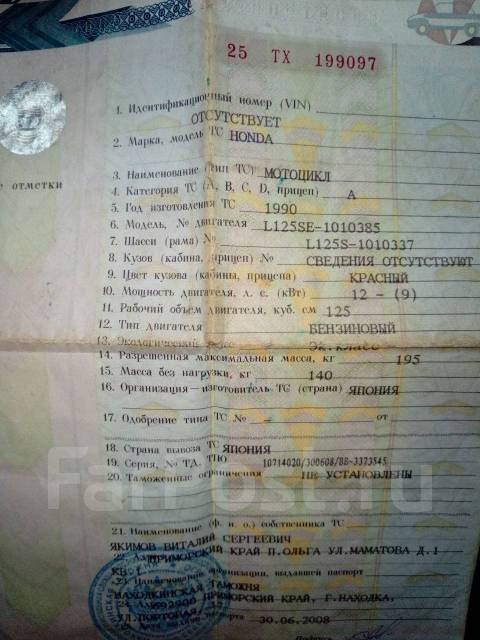 25 ТХ 199097
1. Идентификационный номер (VIN)
ОТСУТСТВУЕТ
2. Марка, модель ТС HONDA
3. Наименование (тип ТС) МОТОЦИКЛ
е отметки
4. Категория ТС (A, B, C, D, прицеп) A
5. Год изготовления ТС 1990
6. Модель, № двигателя L125SE-1010385
7. Шасси (рама) № L125S-1010337
8. Кузов (кабина, прицеп) № СВЕДЕНИЯ ОТСУТСТВУЮТ
9. Цвет кузова (кабины, прицепа) КРАСНЫЙ
10. Мощность двигателя, л. с. (кВт) 12 - (9)
11. Рабочий объем двигателя, куб. см 125
12. Тип двигателя БЕНЗИНОВЫЙ
13. Экологический класс
14. Разрешенная максимальная масса, кг 195
15. Масса без нагрузки, кг 140
16. Организация—изготовитель ТС (страна) ЯПОНИЯ
17. Одобрение типа ТС № – от
18. Страна вывоза ТС ЯПОНИЯ
19. Серия, № ТД, ТПО 10714020/300608/ВВ-3373545
20. Таможенные ограничения НЕ УСТАНОВЛЕНЫ
FarPost.ru
21. Наименование (ф. и. о.) собственника ТС
ЯКИМОВ ВИТАЛИЙ СЕРГЕЕВИЧ
ПРИМОРСКИЙ КРАЙ П.ОЛЬГА УЛ.МАМАТОВА Д.1
КВ.1 организации, выдавшей паспорт
23. Наименование
НАХОДКИНСКАЯ ТАМОЖНЯ
ПРИМОРСКИЙ КРАЙ, Г.НАХОДКА,
УЛ.ПОРТОВАЯ, паспорта 30.06.2008